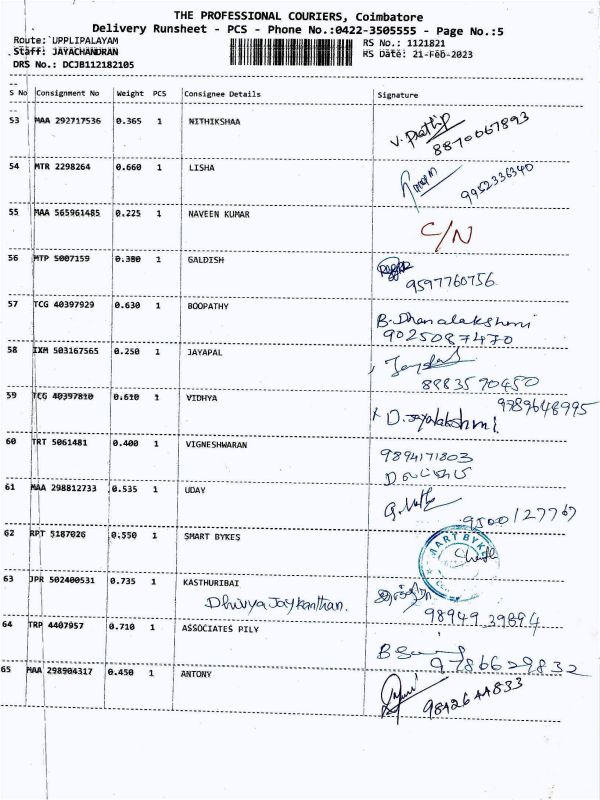 THE PROFESSIONAL COURIERS, Coimbatore
Delivery Runsheet - PCS - Phone No.:0422-3505555 - Page No.:5
Route: UPPLIPALAYAM RS No.: 1121821
Staff: JAYACHANDRAN RS Date: 21-Feb-2023
DRS No.: DCJB112182105
S No Consignment No Weight PCS Consignee Details Signature
53 MAA 292717536 0.365 1 NITHIKSHAA V. Prathip
8870067893
54 MTR 2298264 0.660 1 LISHA
9952336340
55 MAA 565961485 0.225 1 NAVEEN KUMAR C/N
56 MTP 5007159 0.380 1 GALDISH
9597760756
57 TCG 40397929 0.630 1 BOOPATHY B. Dhanalakshmi
9025087470
58 IXM 503167565 0.250 1 JAYAPAL
8883590450
59 TCG 40397810 0.610 1 VIDHYA 9789648995
D. Jayalakshmi.
60 TRT 5061481 0.400 1 VIGNESHWARAN 9894171803
61 MAA 298812733 0.535 1 UDAY
9500127767
62 RPT 5187026 0.550 1 SMART BYKES
SMART BYKES
63 JPR 502400531 0.735 1 KASTHURIBAI
Dhivya Jaykanthan. 98949 39894
64 TRP 4407957 0.710 1 ASSOCIATES PILY
9786629832
65 MAA 298904317 0.450 1 ANTONY
9842644833